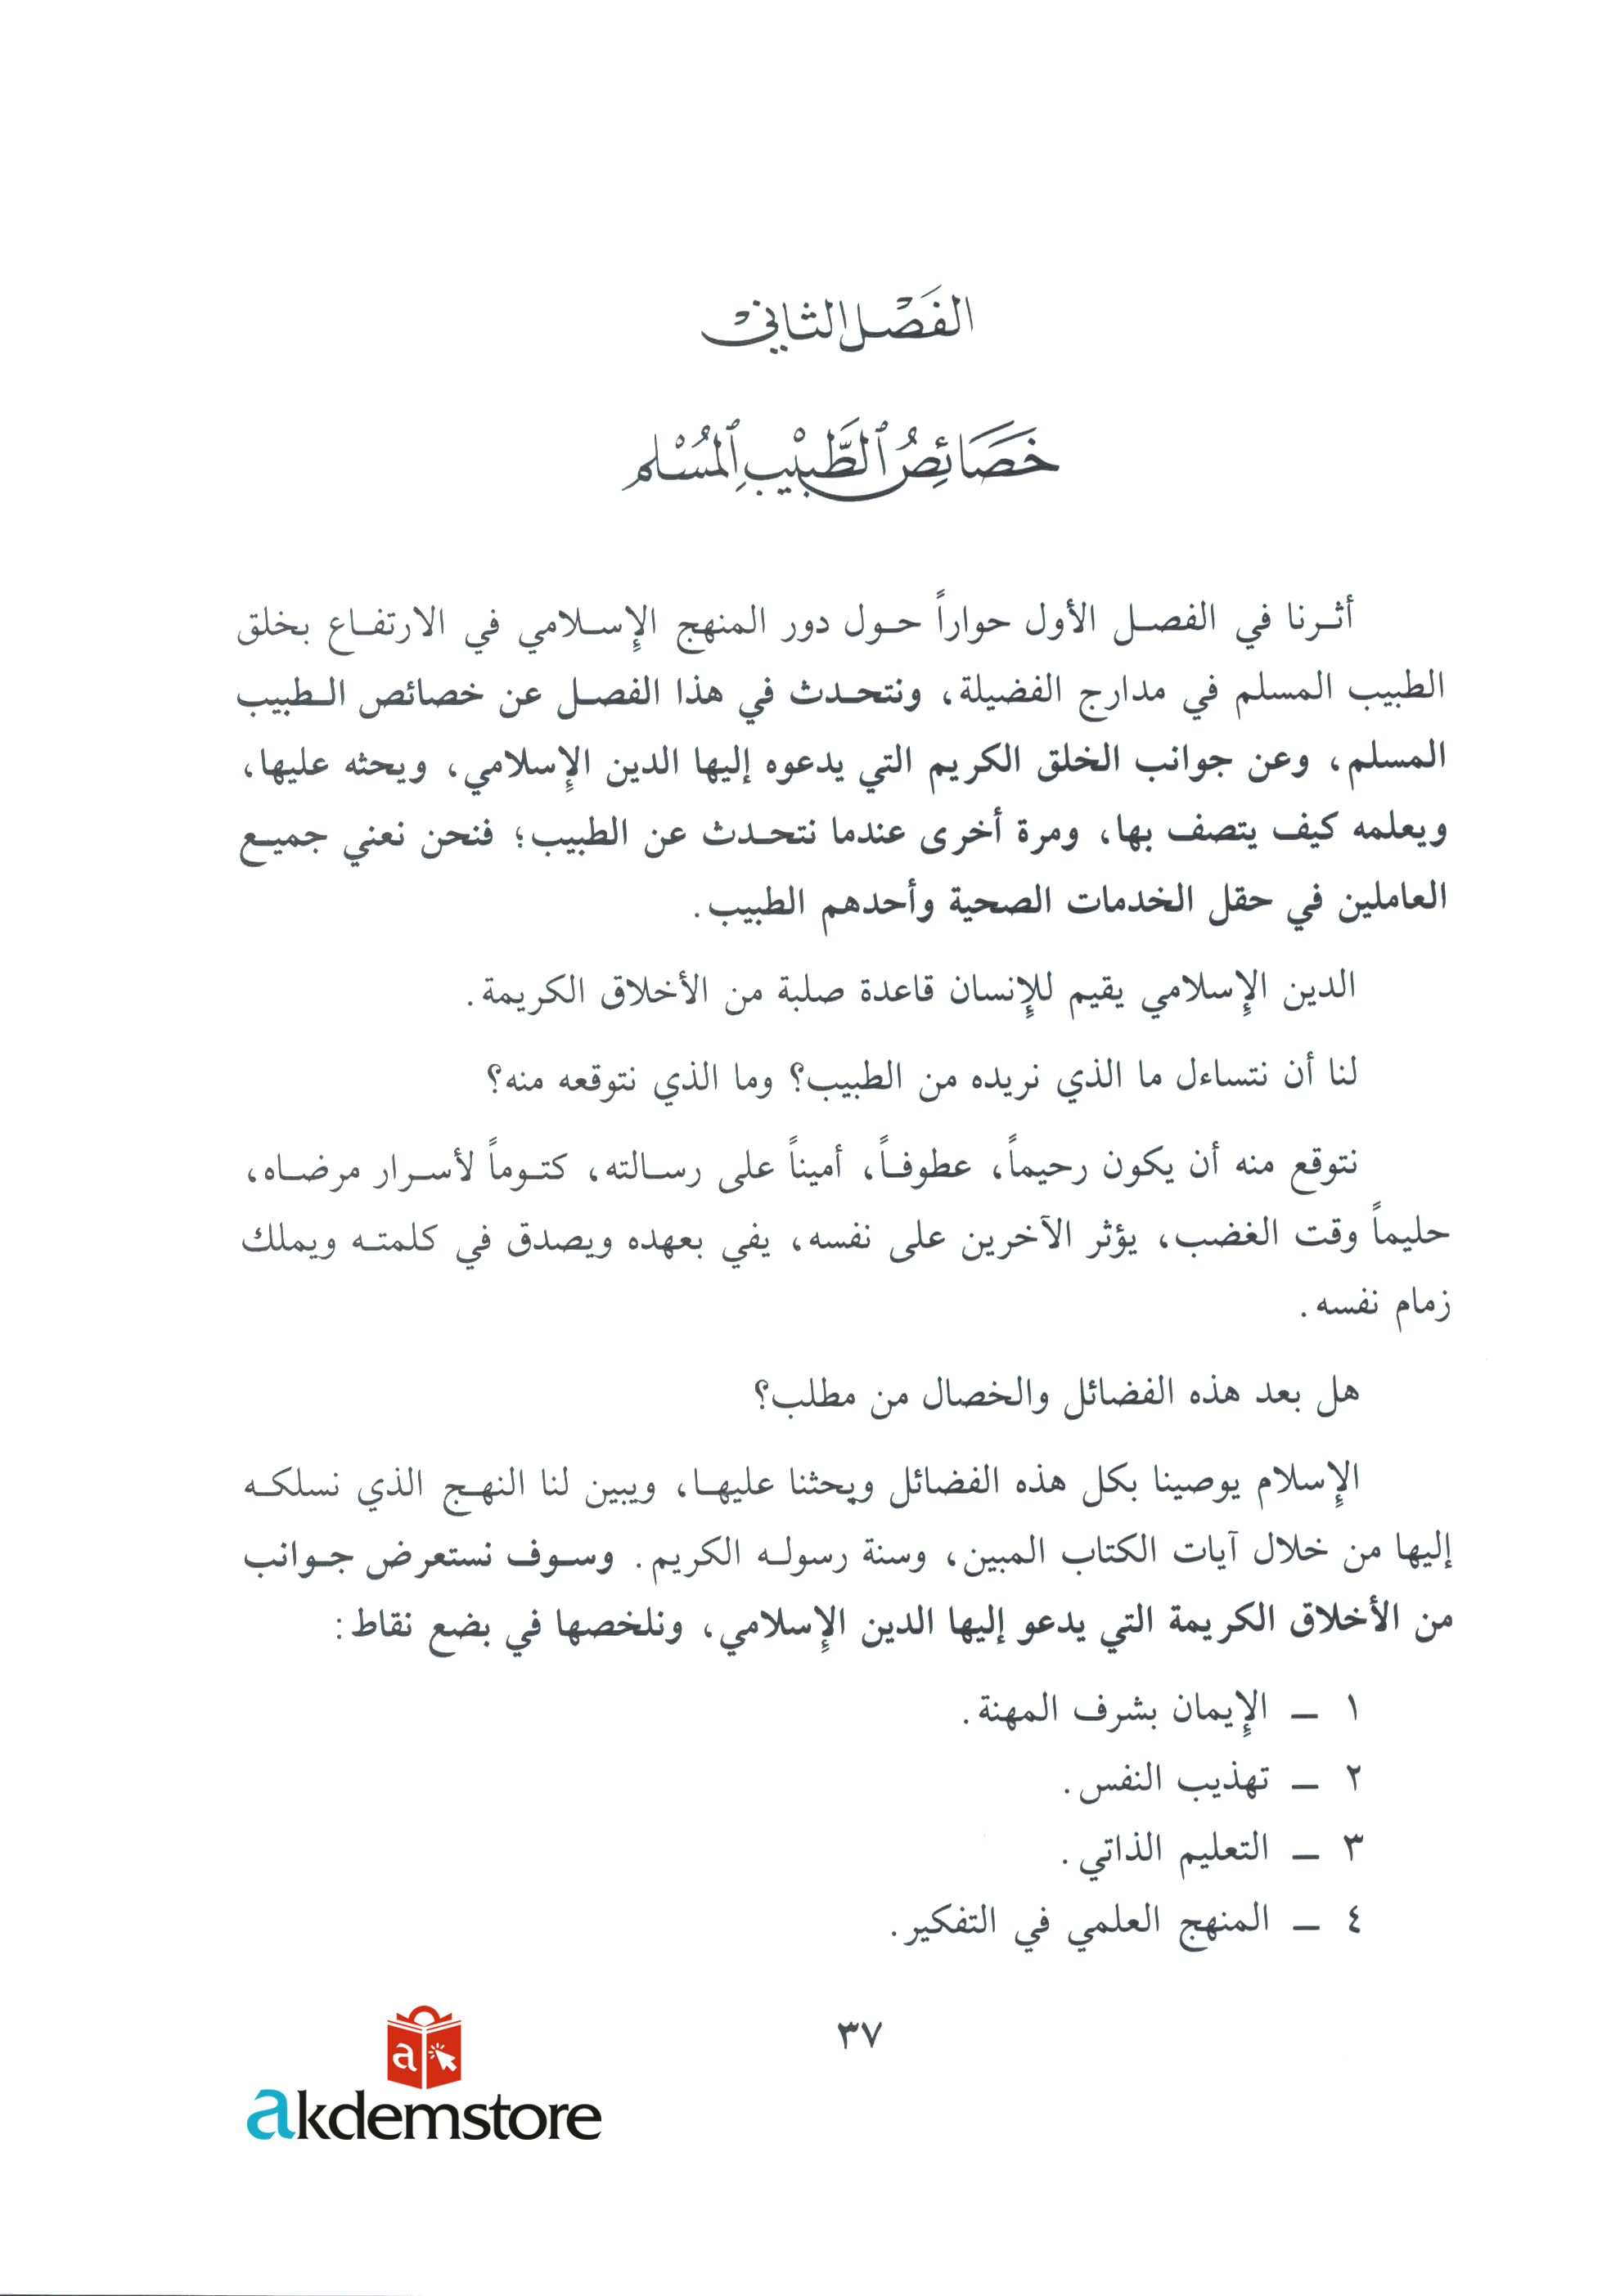 الفَصْل الثاني
خَصَائِصُ ٱلطَّبِيْبِ ٱلمُسْلم
أثـرنا في الفصـل الأول حواراً حـول دور المنهج الإِسـلامي في الارتفـاع بخلق
الطبيب المسلم في مدارج الفضيلة، ونتحـدث في هذا الفصـل عن خصائص الـطبيب
المسلم، وعن جوانب الخلق الكريم التي يدعوه إليها الدين الإِسلامي، ويحثه عليها،
ويعلمه كيف يتصف بها، ومرة أخرى عندما نتحـدث عن الطبيب؛ فنحن نعني جميـع
العاملين في حقل الخدمات الصحية وأحدهم الطبيب.
الدين الإِسلامي يقيم للإِنسان قاعدة صلبة من الأخلاق الكريمة.
لنا أن نتساءل ما الذي نريده من الطبيب؟ وما الذي نتوقعه منه؟
نتوقع منه أن يكون رحيماً، عطوفـاً، أميناً على رسـالته، كتـوماً لأسـرار مرضـاه،
حليماً وقت الغضب، يؤثر الآخرين على نفسه، يفي بعهده ويصدق في كلمتـه ويملك
زمام نفسه.
هل بعد هذه الفضائل والخصال من مطلب؟
الإِسلام يوصينا بكل هذه الفضائل ويحثنا عليهـا، ويبين لنا النهـج الذي نسلكـه
إليها من خلال آيات الكتاب المبين، وسنة رسولـه الكريم. وسـوف نستعرض جـوانب
من الأخلاق الكريمة التي يدعو إليها الدين الإِسلامي، ونلخصها في بضع نقاط:
١ ــ الإِيمان بشرف المهنة.
٢ ــ تهذيب النفس.
٣ ــ التعليم الذاتي.
٤ ــ المنهج العلمي في التفكير.
٣٧
a
akdemstore